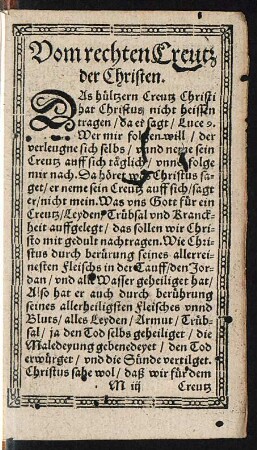 Vom rechten Creutz
der Christen.
DAs hültzern Creutz Christi
hat Christus nicht heissen
tragen / da er sagt / Luce 9.
Wer mir folgen will / der
verleugne sich selbs / vnd neme sein
Creutz auff sich täglich / vnnd folge
mir nach. Da höret Christus sa-
get / er neme sein Creutz auff sich / sagt
er / nicht mein. Was vns Gott für ein
Creutz / Leyden / Trübsal vnd Kranck-
heit aufflegt / das sollen wir Chri-
sto mit gedult nachtragen. Wie Chri-
stus durch berürung seines allerrei-
nesten Fleischs in der Tauff / den Jor-
dan / vnd alle Wasser geheiliget hat /
Also hat er auch durch berührung
seines allerheiligsten Fleisches vnnd
Bluts / alles Leyden / Armut / Trüb-
sal / ja den Tod selbs geheiliget / die
Maledeyung gebenedeyet / den Tod
erwürget / vnd die Sünde vertilget.
Christus sahe wol / daß wir für dem
M iij Creutz